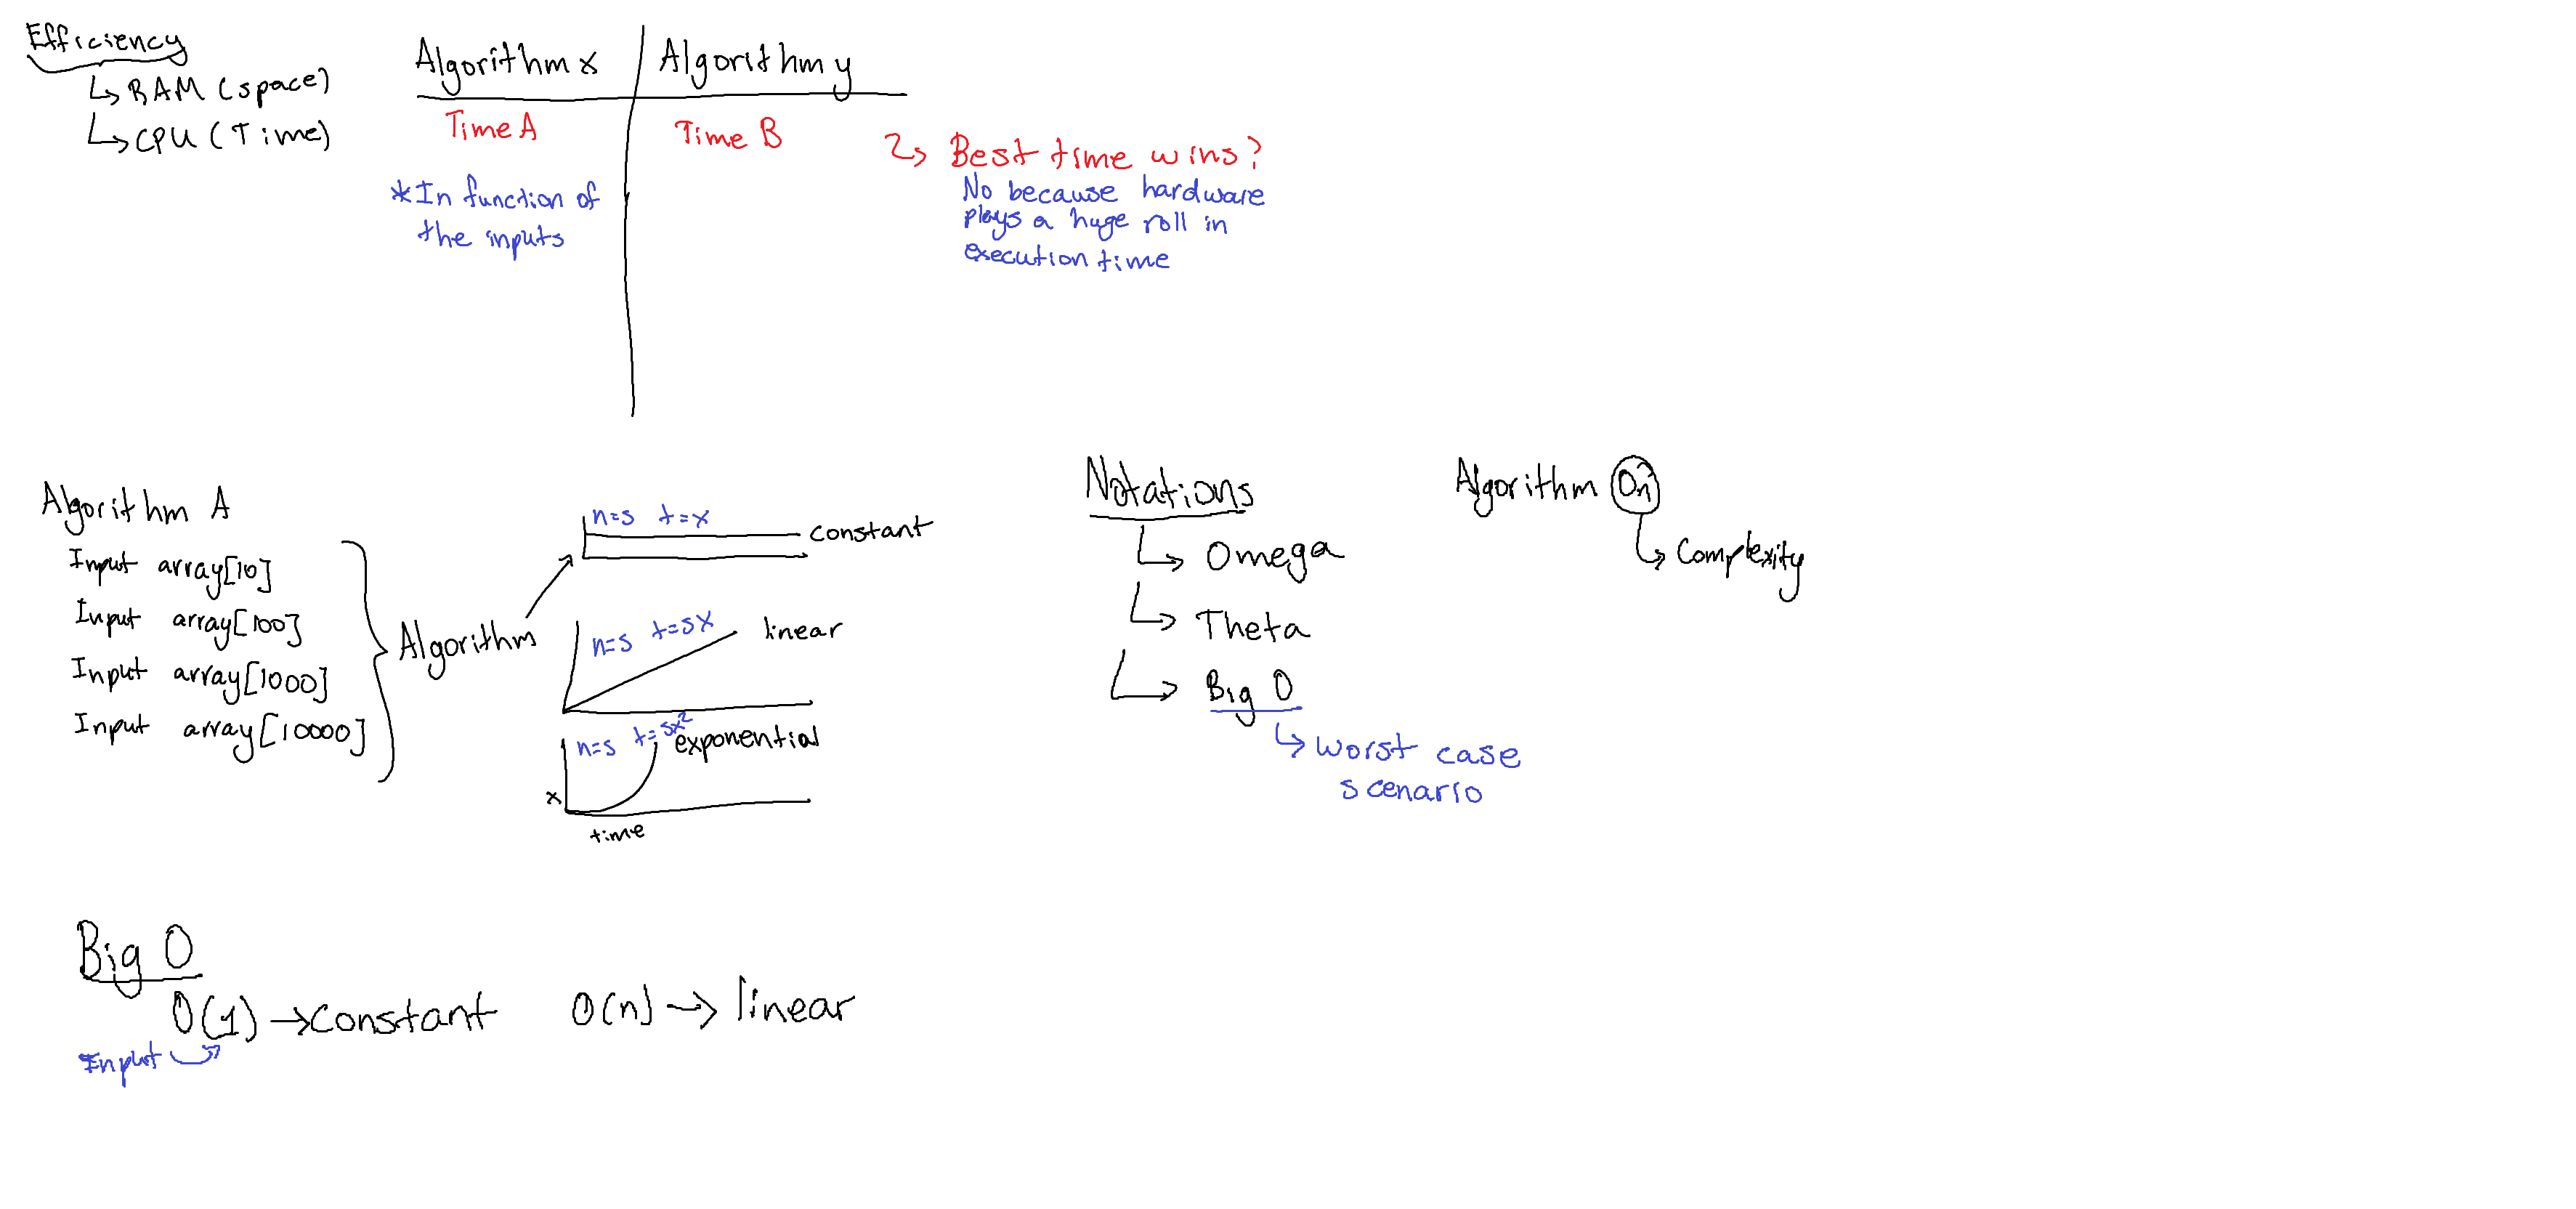 Efficiency
↳ RAM (space)
↳ CPU (Time)
Algorithm x
Algorithm y
Time A
Time B
↳ Best time wins?
No because hardware
plays a huge roll in
execution time
*In function of
the inputs
Algorithm A
Input array[10]
Input array[100]
Input array[1000]
Input array[10000]
Algorithm
n=s t=x
constant
n=s t=sx
linear
n=s t=sx²
exponential
x
time
Notations
↳ Omega
↳ Theta
↳ Big O
↳ worst case
scenario
Algorithm
↳ Complexity
Big O
O(1) → constant
O(n) → linear
Input